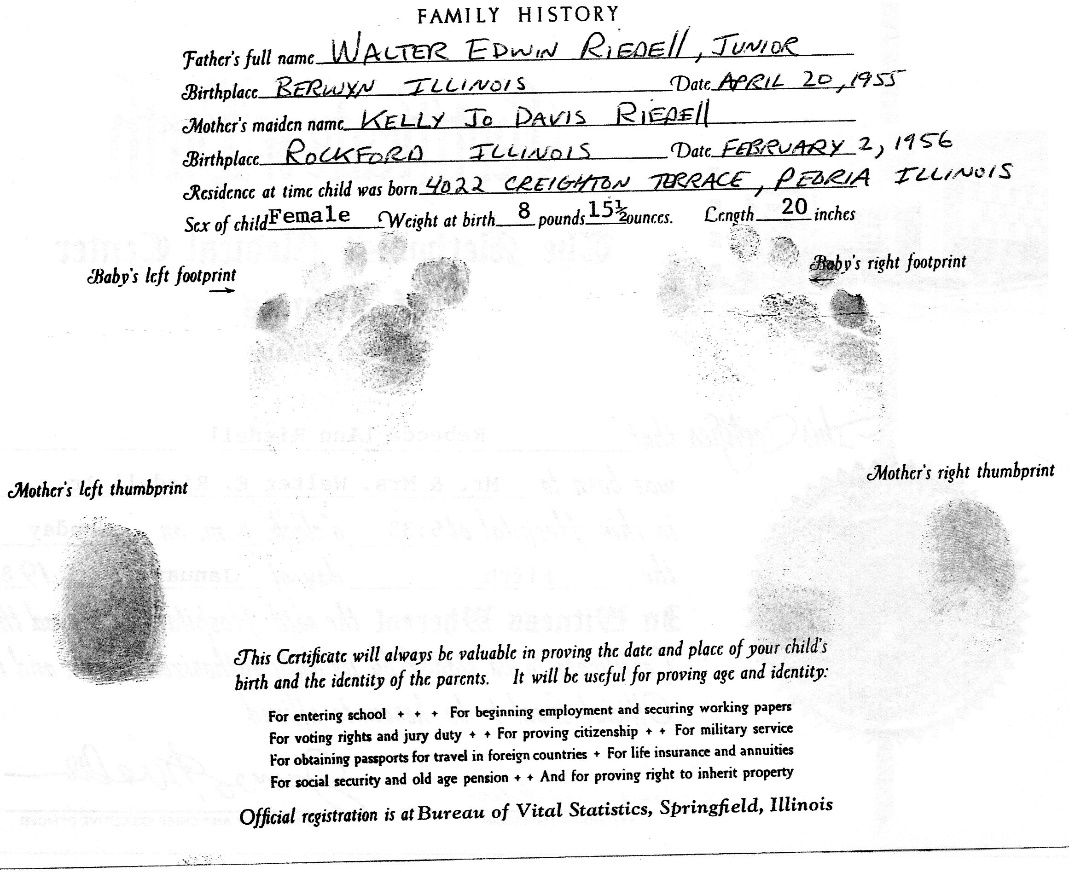 FAMILY HISTORY
Father's full name WALTER EDWIN RIEDEll, JUNIOR
Birthplace BERWYN ILLINOIS Date APRIL 20, 1955
Mother's maiden name KELLY JO DAVIS RIEDEll
Birthplace ROCKFORD ILLINOIS Date FEBRUARY 2, 1956
Residence at time child was born 4022 CREIGHTON TERRACE, PEORIA ILLINOIS
Sex of child Female Weight at birth 8 pounds 15½ ounces. Length 20 inches
Baby's left footprint
Baby's right footprint
Mother's left thumbprint
Mother's right thumbprint
This Certificate will always be valuable in proving the date and place of your child's
birth and the identity of the parents. It will be useful for proving age and identity:
For entering school + + + For beginning employment and securing working papers
For voting rights and jury duty + + For proving citizenship + + For military service
For obtaining passports for travel in foreign countries + For life insurance and annuities
For social security and old age pension + + And for proving right to inherit property
Official registration is at Bureau of Vital Statistics, Springfield, Illinois